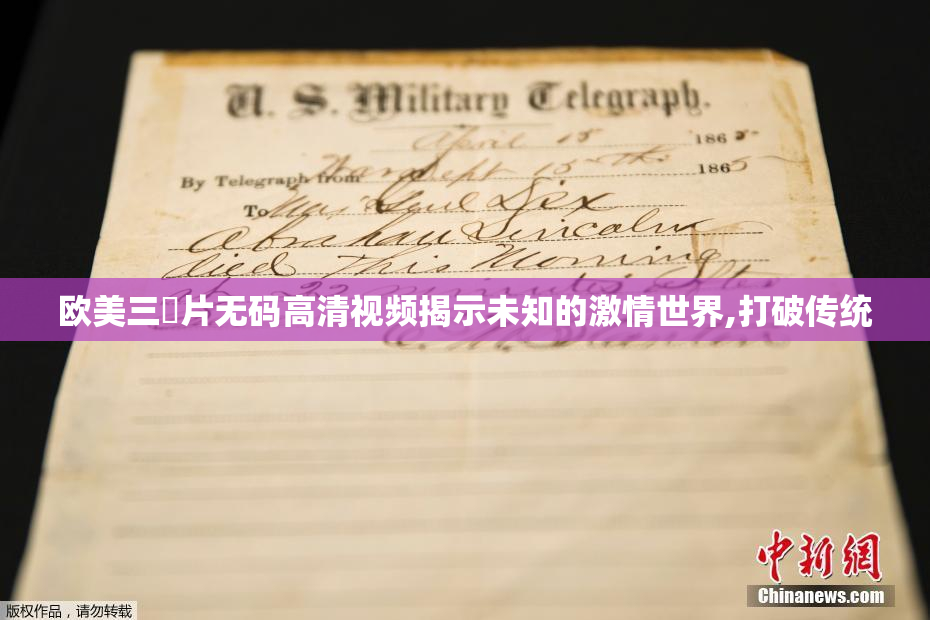 U. S. Military Telegraph.
April 15 1865
By Telegraph from War Dept 15th 1865
To Maj Genl Dix
Abraham Lincoln
died This Morning
at 22 minutes after
欧美三片无码高清视频揭示未知的激情世界,打破传统
中新网
Chinanews.com
版权作品，请勿转载